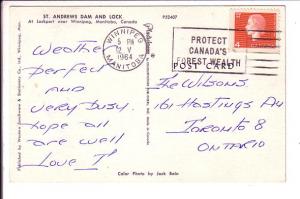 ST. ANDREWS DAM AND LOCK
At Lockport near Winnipeg, Manitoba, Canada
P52407
WINNIPEG
5 PM
12 V
1964
MANITOBA
PROTECT
CANADA'S
FOREST WEALTH
POST CARD
4
Weather
perfect
AND
very busy.
hope all
are well
Love
The Wilsons
161 Hastings Av
TORONTO 8
ONTARIO
Color Photo by Jack Bain